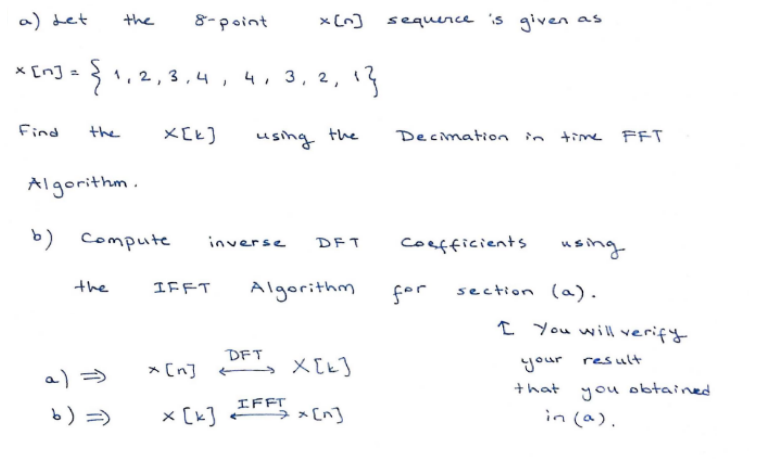 a) Let the 8-point x[n] sequence is given as
x[n] = { 1, 2, 3, 4, 4, 3, 2, 1 }
Find the X[k] using the Decimation in time FFT
Algorithm.
b) Compute inverse DFT Coefficients using
the IFFT Algorithm for section (a).
↑ You will verify
your result
that you obtained
in (a).
a) ⇒ x[n] DFT ⟷ X[k]
b) ⇒ X[k] IFFT ⟷ x[n]